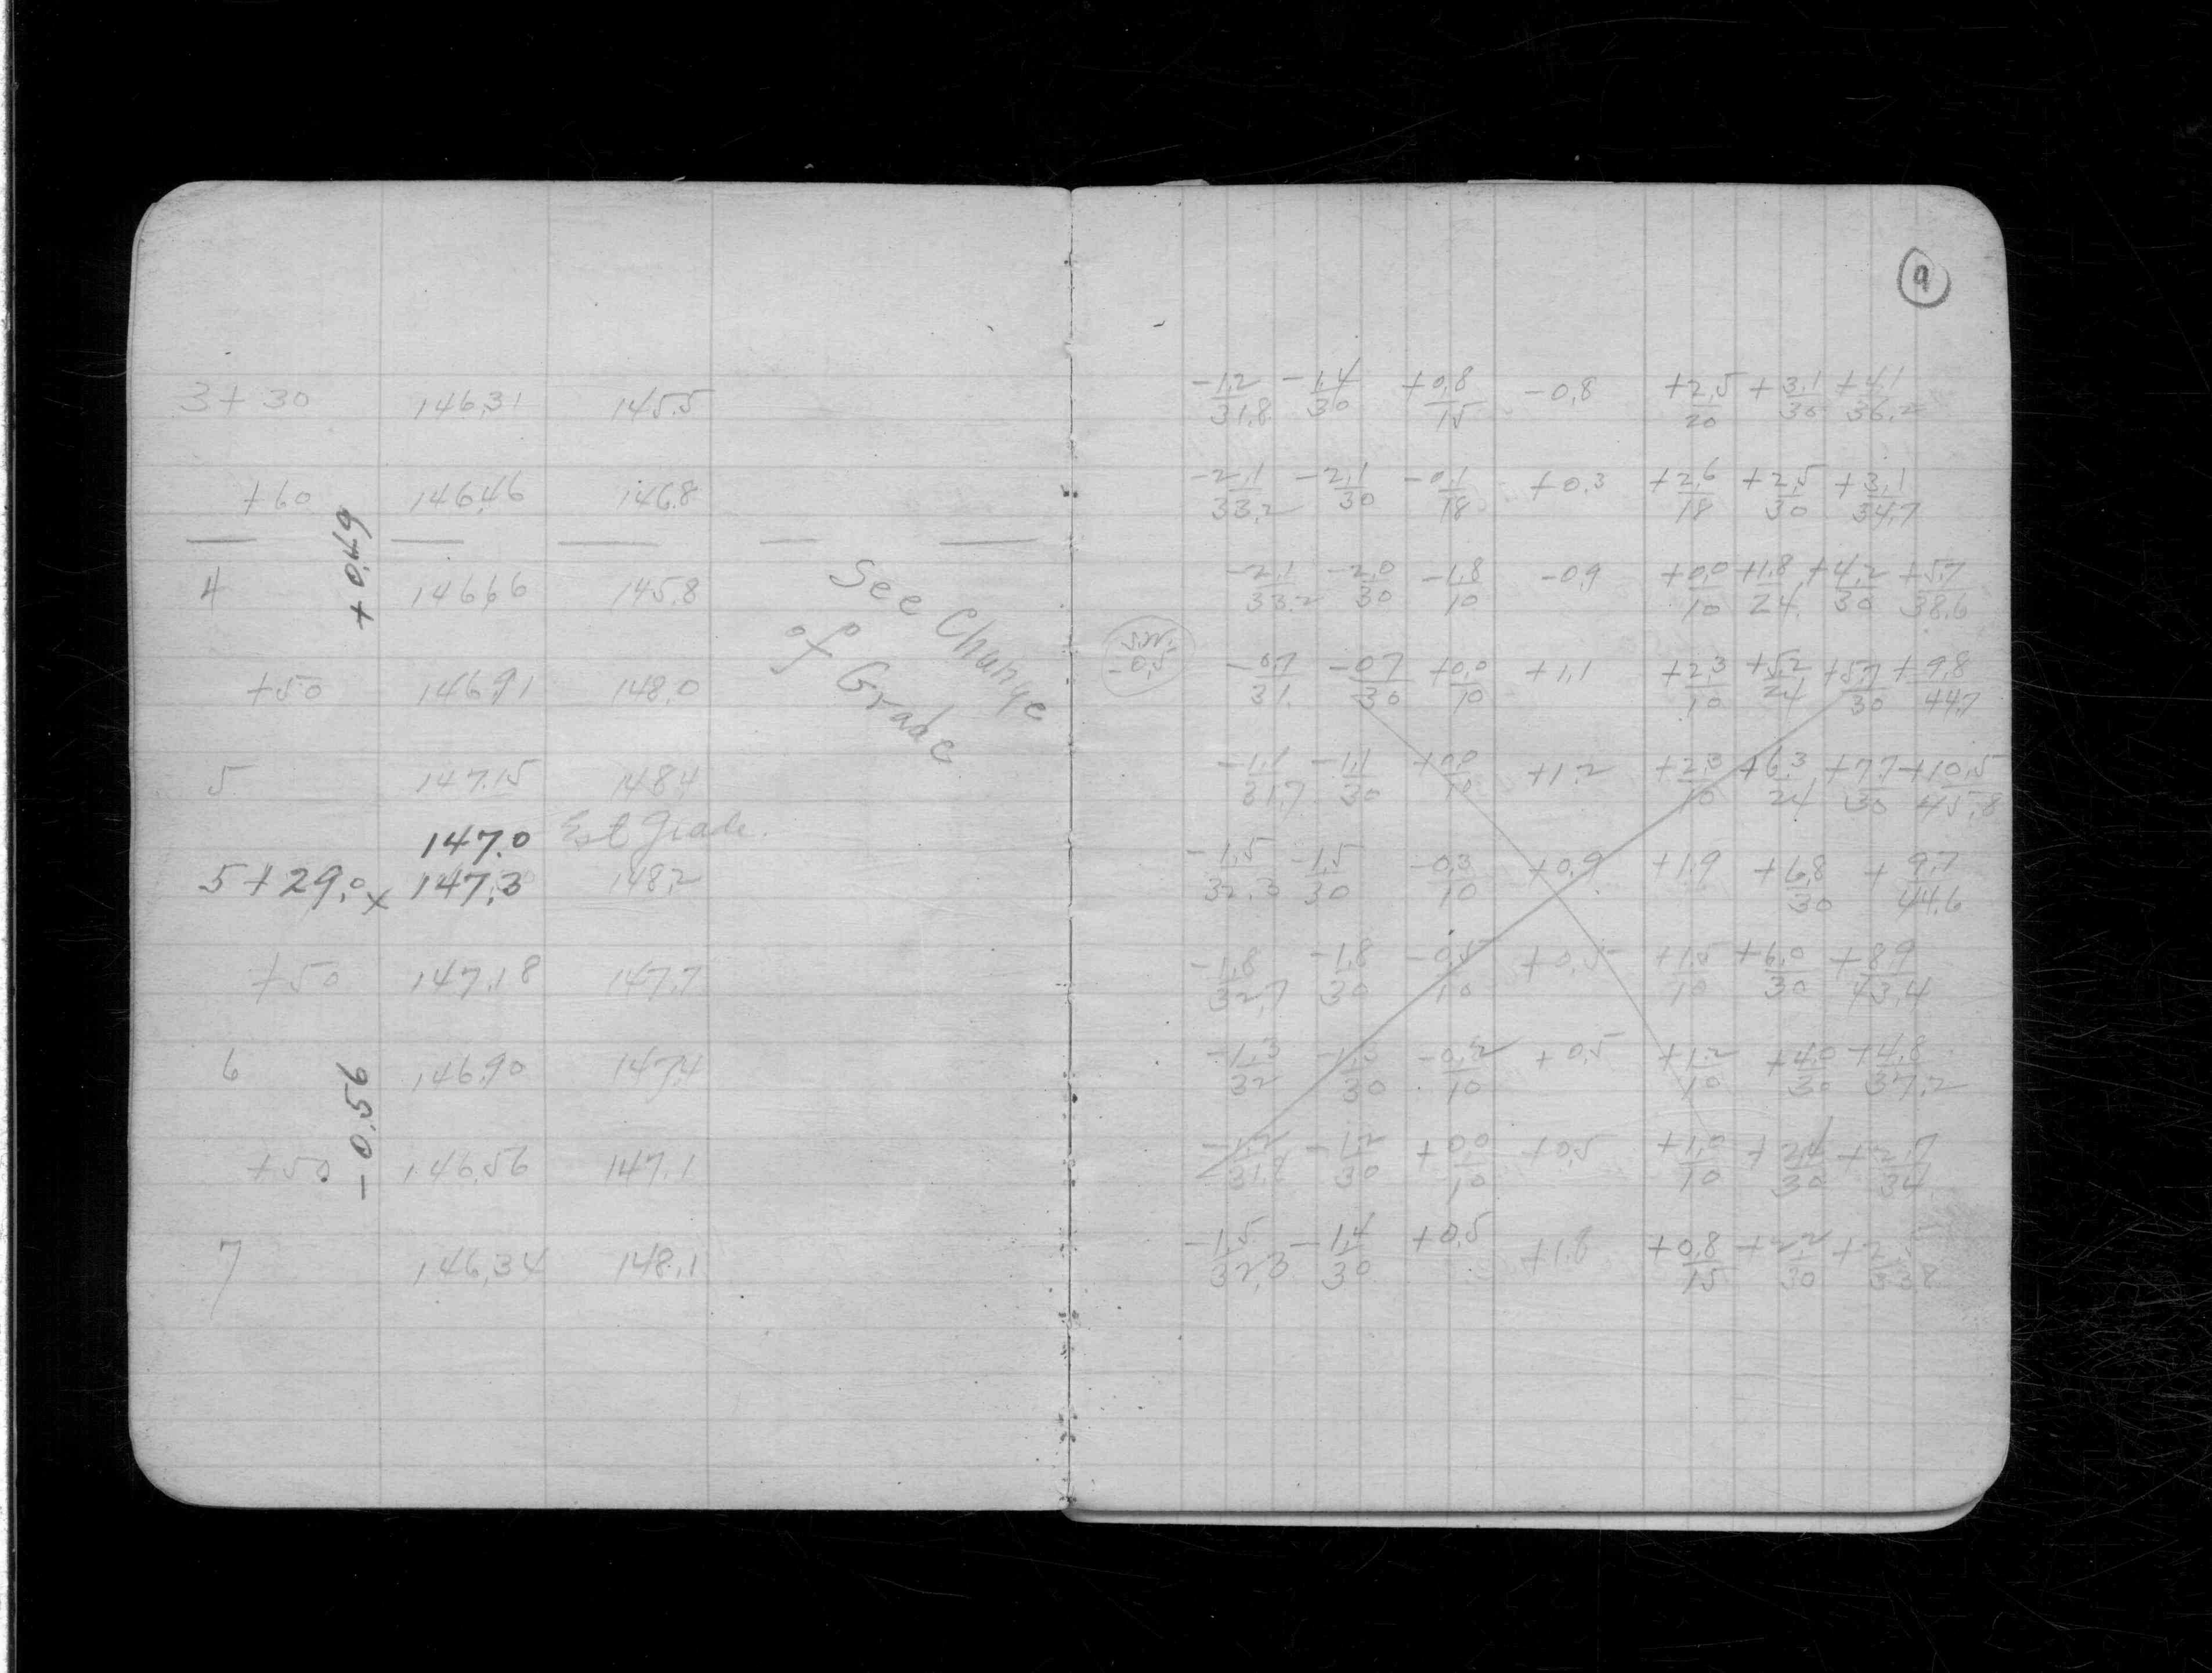 3+30 146.31 145.5
+60 146.46 146.8
+0.49
4 146.66 145.8
+50 146.91 148.0
See Change
of Grade
5 147.15 148.4
147.0 Est Grade.
5+29.0 x 147.3 148.2
+50 147.18 147.7
6 146.90 147.4
-0.56
+50 146.56 147.1
7 146.34 148.1
9
-1.2 -1.4 +0.8 -0.8 +2.5 +3.1 +4.1
31.8 30 15 20 30 36.2
-2.1 -2.1 -0.1 +0.3 +2.6 +2.5 +3.1
33.2 30 18 18 30 34.7
-2.1 -2.0 -1.8 -0.9 +0.0 +1.8 +4.2 +5.7
33.2 30 10 10 24 30 38.6
-0.5
-0.7 -0.7 +0.0 +1.1 +2.3 +5.2 +5.7 +9.8
31. 30 10 10 24 30 44.7
-1.1 -1.1 +0.0 +1.2 +2.3 +6.3 +7.7 +10.5
31.7 30 10 10 24 30 45.8
-1.5 -1.5 -0.3 +0.9 +1.9 +6.8 +9.7
32.3 30 10 30 44.6
-1.8 -1.8 -0.5 +0.5 +1.5 +6.0 +8.9
32.7 30 10 10 30 43.4
-1.3 -1.3 -0.2 +0.5 +1.2 +4.0 +4.8
32 30 10 10 30 37.2
-1.2 -1.2 +0.0 +0.5 +1.0 +2.6 +2.7
31.8 30 10 10 30 34
-1.5 -1.4 +0.5 +1.8 +0.8 +2.2
32.3 30 15 30 33.8